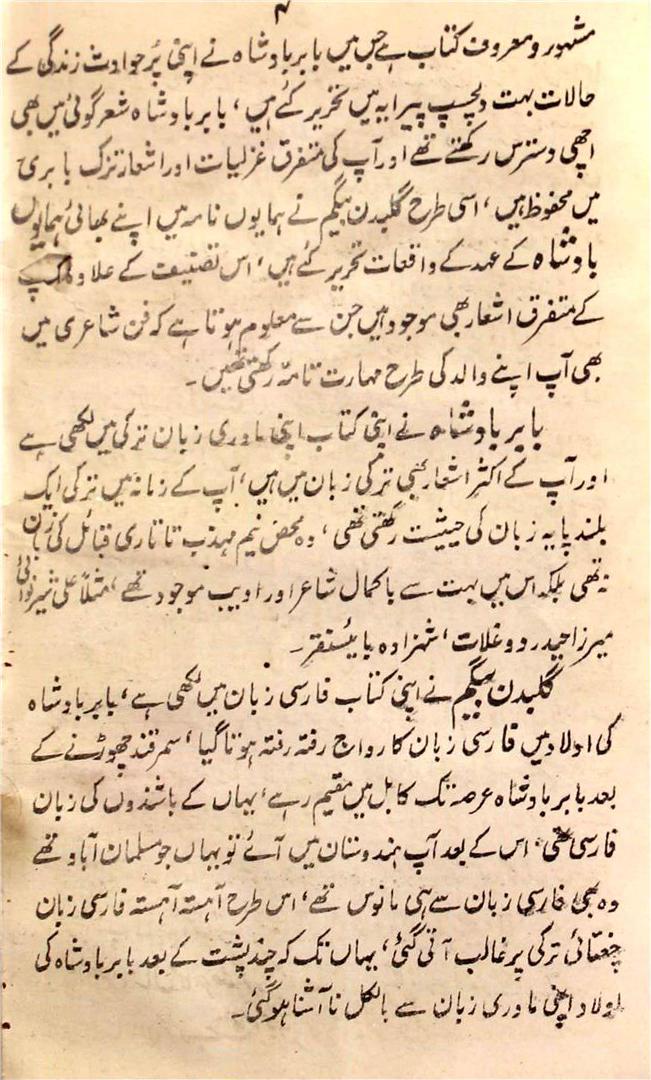 ۴
مشہور و معروف کتاب ہے جس میں بابر بادشاہ نے اپنی پُر حوادث زندگی کے
حالات بہت دلچسپ پیرایہ میں تحریر کئے ہیں، بابر بادشاہ شعر گوئی میں بھی
اچھی دسترس رکھتے تھے اور آپ کی متفرق غزلیات اور اشعار تزک بابری
میں محفوظ ہیں، اسی طرح گلبدن بیگم نے ہمایوں نامہ میں اپنے بھائی ہمایوں
بادشاہ کے عہد کے واقعات تحریر کئے ہیں، اس تصنیف کے علاوہ آپ
کے متفرق اشعار بھی موجود ہیں جن سے معلوم ہوتا ہے کہ فن شاعری میں
بھی آپ اپنے والد کی طرح مہارت تامہ رکھتی تھیں۔
بابر بادشاہ نے اپنی کتاب اپنی مادری زبان ترکی میں لکھی ہے
اور آپ کے اکثر اشعار بھی ترکی زبان میں ہیں، آپ کے زمانہ میں ترکی ایک
بلند پایہ زبان کی حیثیت رکھتی تھی، وہ محض نیم مہذب تاتاری قبائل کی زبان
نہ تھی بلکہ اس میں بہت سے باکمال شاعر اور ادیب موجود تھے، مثلاً علی شیر نوائی
میرزا حیدر دوغلات، شہزادہ بایُسنقر۔
گلبدن بیگم نے اپنی کتاب فارسی زبان میں لکھی ہے، بابر بادشاہ
کی اولاد میں فارسی زبان کا رواج رفتہ رفتہ ہوتا گیا، سمرقند چھوڑنے کے
بعد بابر بادشاہ عرصہ تک کابل میں مقیم رہے، یہاں کے باشندوں کی زبان
فارسی تھی، اس کے بعد آپ ہندوستان میں آئے تو یہاں جو مسلمان آباد تھے
وہ بھی فارسی زبان سے ہی مانوس تھے، اس طرح آہستہ آہستہ فارسی زبان
چغتائی ترکی پر غالب آتی گئی، یہاں تک کہ چند پشت کے بعد بابر بادشاہ کی
اولاد اپنی مادری زبان سے بالکل ناآشنا ہو گئی۔